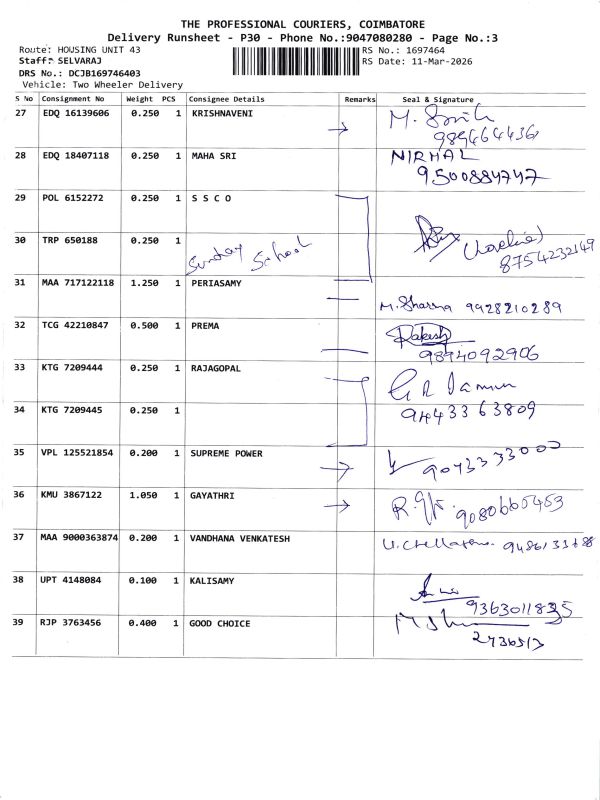 THE PROFESSIONAL COURIERS, COIMBATORE
Delivery Runsheet - P30 - Phone No.:9047080280 - Page No.:3
Route: HOUSING UNIT 43
RS No.: 1697464
Staff: SELVARAJ
RS Date: 11-Mar-2026
DRS No.: DCJB169746403
Vehicle: Two Wheeler Delivery
S No Consignment No Weight PCS Consignee Details Remarks Seal & Signature
27 EDQ 16139606 0.250 1 KRISHNAVENI
28 EDQ 18407118 0.250 1 MAHA SRI NIRMAL
9500884747
29 POL 6152272 0.250 1 S S C O
30 TRP 650188 0.250 1
Sunday School
8754232149
31 MAA 717122118 1.250 1 PERIASAMY
M. Sharma 9928210289
32 TCG 42210847 0.500 1 PREMA Rakesh
9894092906
33 KTG 7209444 0.250 1 RAJAGOPAL
34 KTG 7209445 0.250 1 9443363809
35 VPL 125521854 0.200 1 SUPREME POWER
9073333000
36 KMU 3867122 1.050 1 GAYATHRI
37 MAA 9000363874 0.200 1 VANDHANA VENKATESH
38 UPT 4148084 0.100 1 KALISAMY
39 RJP 3763456 0.400 1 GOOD CHOICE
2736513